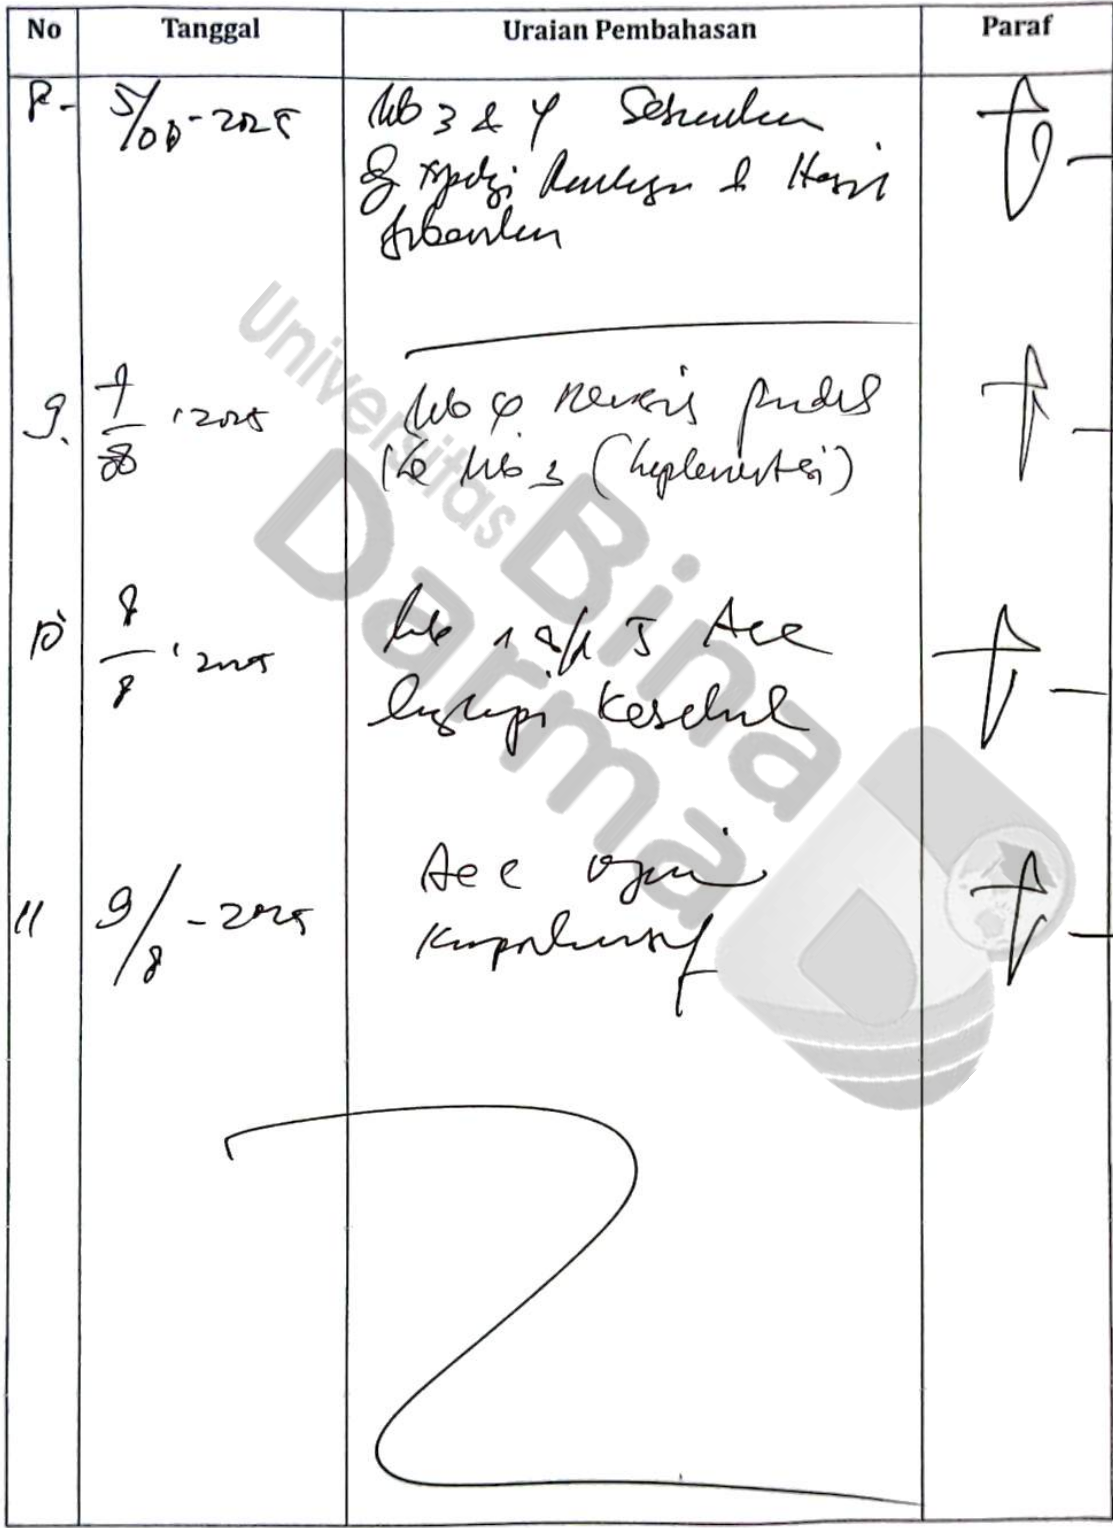 No Tanggal Uraian Pembahasan Paraf
8- 5/08-2025 bab 3 & 4 Sesuaikan
& Hasil
9. 7/08 2025 bab 4 Revisi
ke bab 3 (Implementasi)
10 8/8 2025 bab 1 s/d 5 Acc
lengkapi
11 9/8-2025 Acc ujian
Komprehensif
Universitas
Bina
Darma